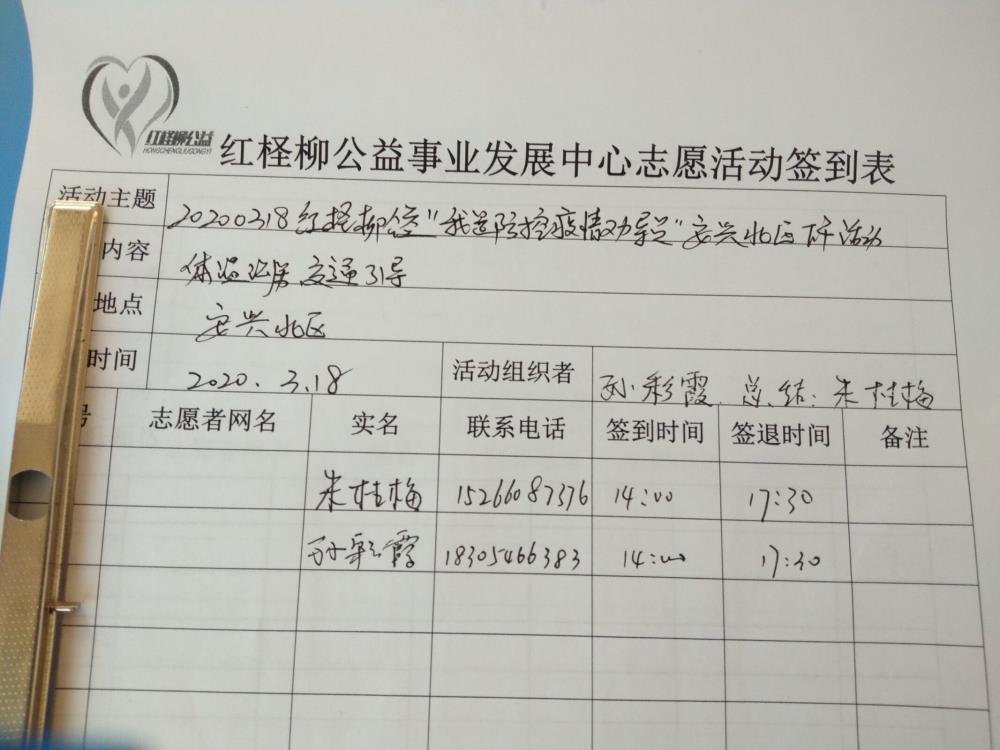 红柽柳公益
HONGCHENGLIUGONGYI
红柽柳公益事业发展中心志愿活动签到表
活动主题 20200318红柽柳公益"我是防控疫情劝导员"安兴北区下午活动
内容 体温测量 交通引导
地点 安兴北区
时间 2020.3.18 活动组织者 孙彩霞 总结:朱桂梅
号 志愿者网名 实名 联系电话 签到时间 签退时间 备注
朱桂梅 15266087376 14:00 17:30
孙彩霞 18305466383 14:00 17:30